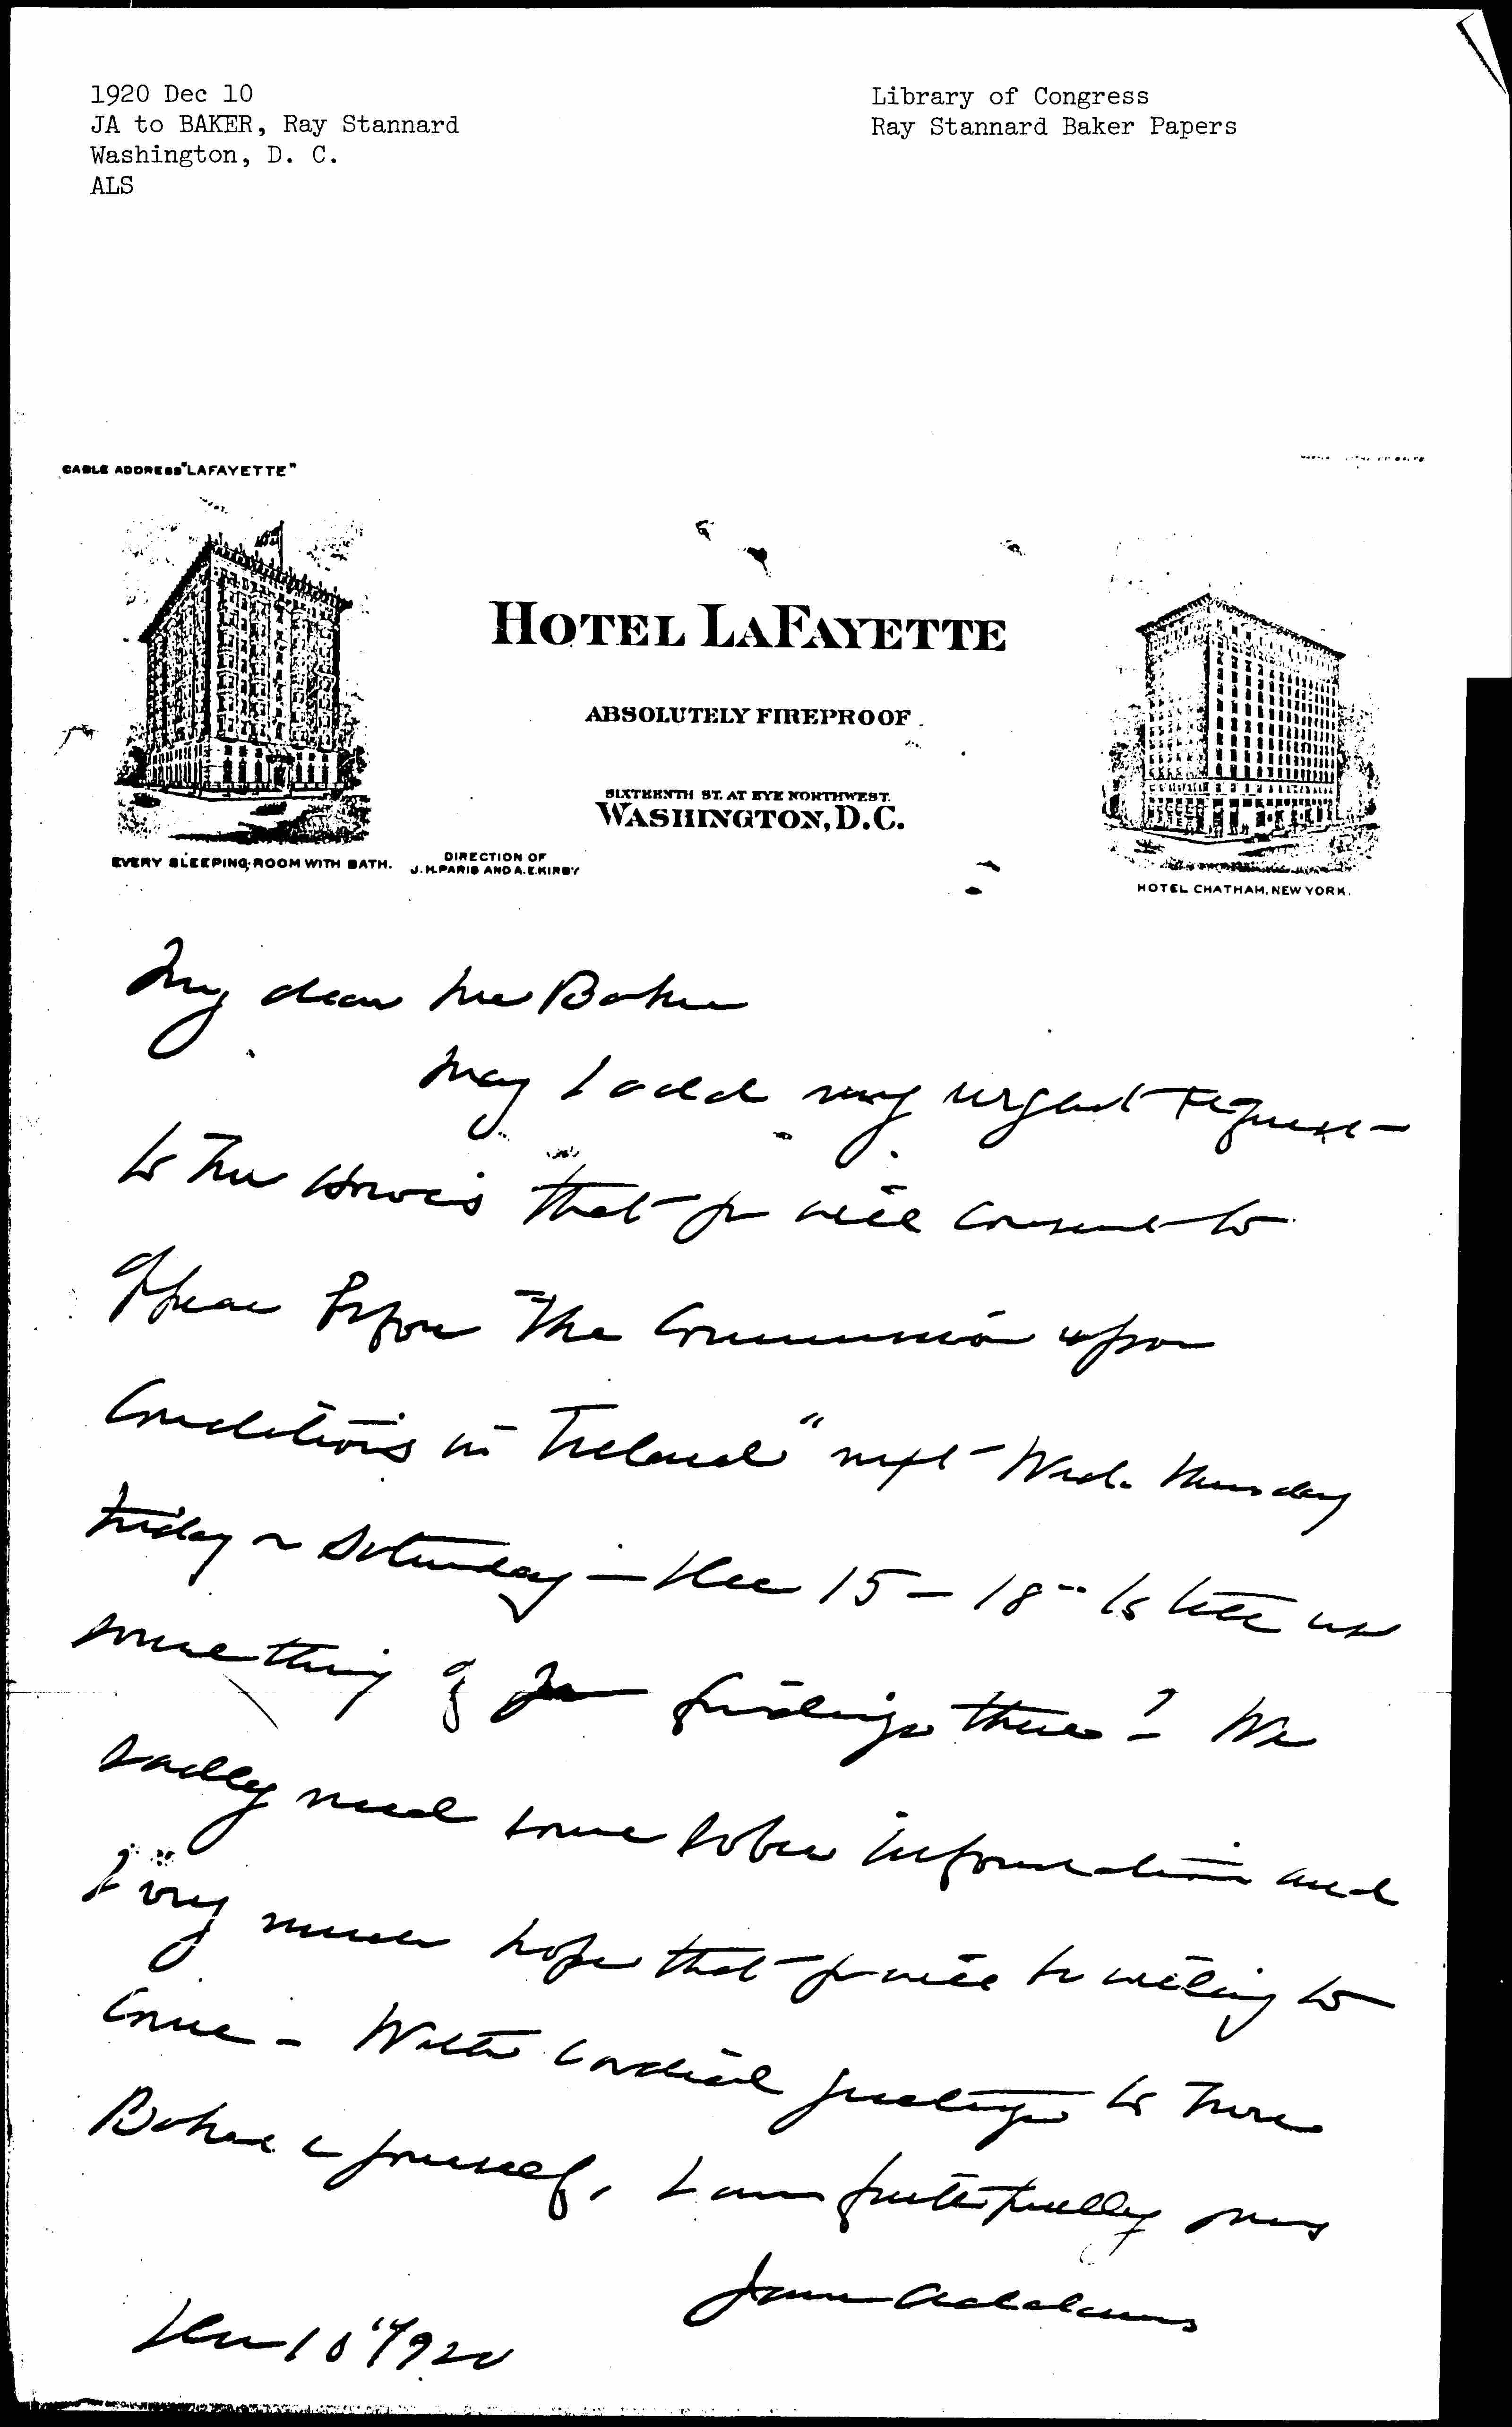 1920 Dec 10
JA to BAKER, Ray Stannard
Washington, D. C.
ALS
Library of Congress
Ray Stannard Baker Papers
CABLE ADDRESS "LAFAYETTE"
HOTEL LAFAYETTE
ABSOLUTELY FIREPROOF.
SIXTEENTH ST. AT EYE NORTHWEST.
WASHINGTON, D.C.
EVERY SLEEPING ROOM WITH BATH.
DIRECTION OF
J.H. PARIS AND A.E. KIRBY
HOTEL CHATHAM, NEW YORK.
My dear Mr Baker
May I add my urgent request
to Mr that you will consent to
appear before "The Commission upon
Conditions in Ireland" next Wed. Thursday
Friday or Saturday – Dec 15 – 18" to tell us
something of your findings there? We
sadly need some sober information and
I very much hope that you will be willing to
come – With cordial greetings to Mrs
Baker & yourself, I am faithfully yours
Jane Addams
Dec 10" 1920